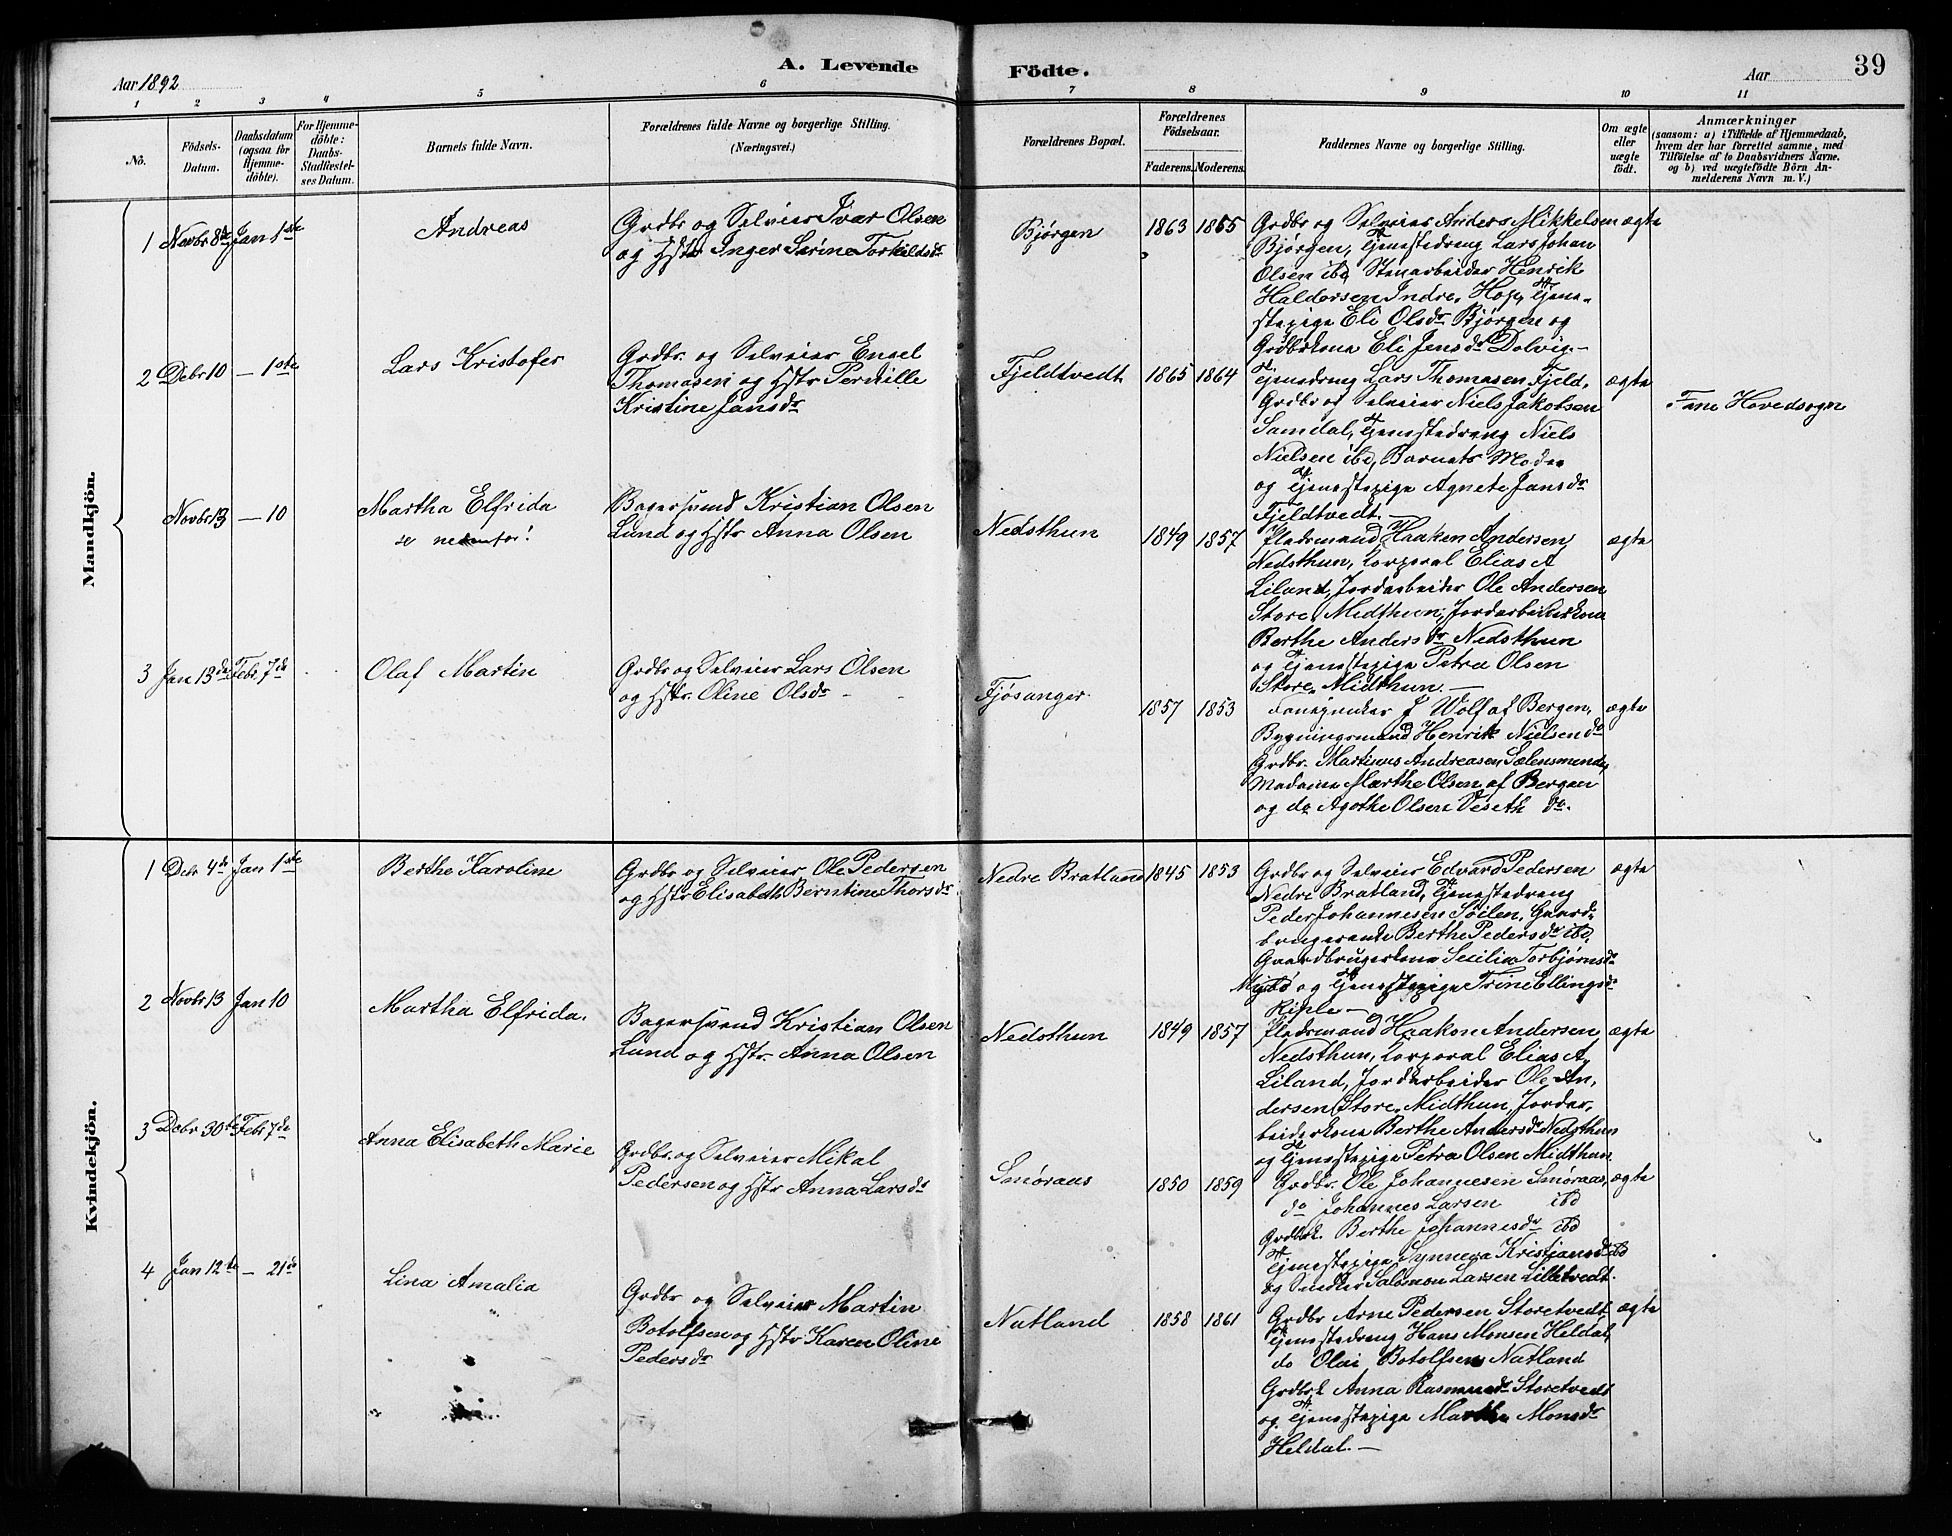 Aar 1892
A. Levende
Födte.
Aar
39
1 2 3 4 5 6 7 8 9 10 11
No.
Födsels-
Datum.
Daabsdatum
(ogsaa for
Hjemme-
döbte).
For Hjemme-
döbte:
Daabs-
Stadfæstel-
ses Datum.
Barnets fulde Navn.
Forældrenes fulde Navne og borgerlige Stilling.
(Næringsvei.)
Forældrenes Bopæl.
Forældrenes
Födselsaar.
Faderens. Moderens.
Faddernes Navne og borgerlige Stilling.
Om ægte
eller
uægte
födt.
Anmærkninger
(saasom: a) i Tilfælde af Hjemmedaab,
hvem der har forrettet samme, med
Tilföielse af to Daabsvidners Navne.
og b) ved uægtefödte Börn An-
melderens Navn m. V.)
Mandkjön.
1 Novbr 8de Jan 1ste
Andreas
Grdbr og Selveier Ivar Olsen
og Hstr Inger Serine Torkildsdr
Bjørgen
1863 1865
Grdbr og Selveier Anders Mikkelsen
Bjørgen, Tjenestedreng Lars Johan
Olsen ibd, Stenarbeider Henrik
Haldorsen Indre, Hop, Tjene-
stepige Eli Olsdr Bjørgen og
Grdbrkona Eli Jensdr Dolvig.-
ægte
2 Debr 10 — 1ste
Lars Kristofer
Grdbr. og Selveier Engel
Thomasen og Hstr Pernille
Kristine Jansdr
Fjeldtvedt
1865 1864
Tjenedreng Lars Thomasen Fjeld,
Grdbr og Selveier Niels Jakobsen
Samdal, Tjenestedreng Niels
Nielsen ibd, Barnets Moder
og Tjenestepige Agnete Jansdr
Fjeldtvedt.-
ægte
Fane Hovedsogn
Novbr 13 — 10
Martha Elfrida
se nedenfor!
Bagersvend Kristian Olsen
Lund og Hstr Anna Olsen
Nedsthun
1849 1857
Pladsmand Haaken Andersen
Nedsthun, Corporal Elias A
Liland, Jordarbeider Ole Andersen
Store, Midthun, Jordarbeiderkona
Berthe Andersdr Nedsthun
og Tjenestepige Petra Olsen
Store, Midthun.-
ægte
3 Jan 13de Febr 7de
Olaf Martin
Grdbr og Selveier Lars Olsen
og Hstr. Oline Olsdr
Fjøsanger
1857 1853
J Wolf af Bergen,
Bygningsmand Henrik Nielsen do
Grdbr. Martinus Andreasen Sælensminde,
Madame Marthe Olsen af Bergen
og do Agothe Olsen Veseth do.
ægte
Kvindekjön.
1 Debr 4de Jan 1ste
Berthe Karoline
Grdbr og Selveier Ole Pedersen
og Hstr Elisabeth Berntine Thorsdr
Nedre Bratland
1845 1853
Grdbr og Selveier Edvard Pedersen
Nedre Bratland, Tjenestedreng
Peder Johannesen Søilen, Gaard-
brugerenke Berthe Pedersdr ibd,
Gaardbrugerkona Secilia Torbjørnsdr
og Tjenestepige Trine Ellingsdr
Riple -
ægte
2 Novbr 13 Jan 10
Martha Elfrida.
Bagersvend Kristian Olsen
Lund og Hstr. Anna Olsen
Nedsthun
1849 1857
Pladsmand Haakon Andersen
Nedsthun, Corporal Elias A,
Liland, Jordarbeider Ole An,
dersen Store, Midthun, Jordar,
beiderkona Berthe Andersdr Nedsthun
og Tjenestepige Petra Olsen Midthun
ægte
3 Debr 30te Febr 7de
Anna Elisabeth Marie
Grdbr. og Selveier Mikal
Pedersen og Hstr Anna Larsdr
Smøraas
1850 1859
Grdbr. Ole Johannesen Smøraas,
do Johannes Larsen ibd
Grdbrk. Berthe Johannesdr ibd
Tjenestepige Synneva Kristiansdr ibd
og Snedker Salomon Larsen Lilletvedt.
ægte
4 Jan 12te — 21de
Lina Amalia
Grdbr og Selveier Martin
Botolfsen og Hstr Karen Oline
Pedersdr
Natland
1858 1861
Grdbr Arne Pedersen Storetvedt,
Tjenestedreng Hans Monsen Heldal,
do Olai Botolfsen Natland
Grdbrk Anna Rasmusdr Storetvedt
og Tjenestepige Martha Monsdr
Heldal.-
ægte